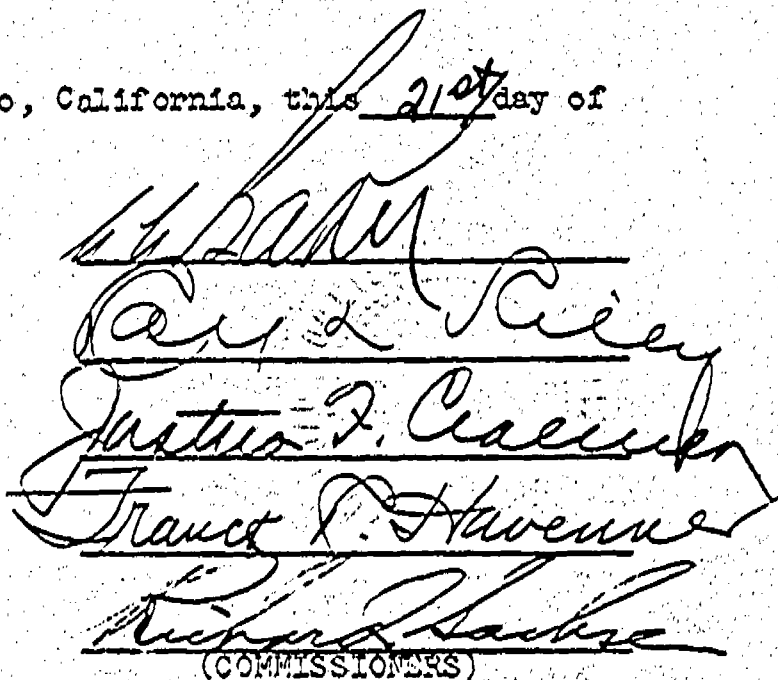 o, California, this 21st day of
Ray L Riley
Justus F. Craemer
Franck R. Havenner
Richard Sachse
(COMMISSIONERS)